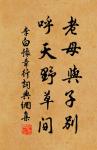 老母與子別
呼天野草間
李白豫章行詞典網集